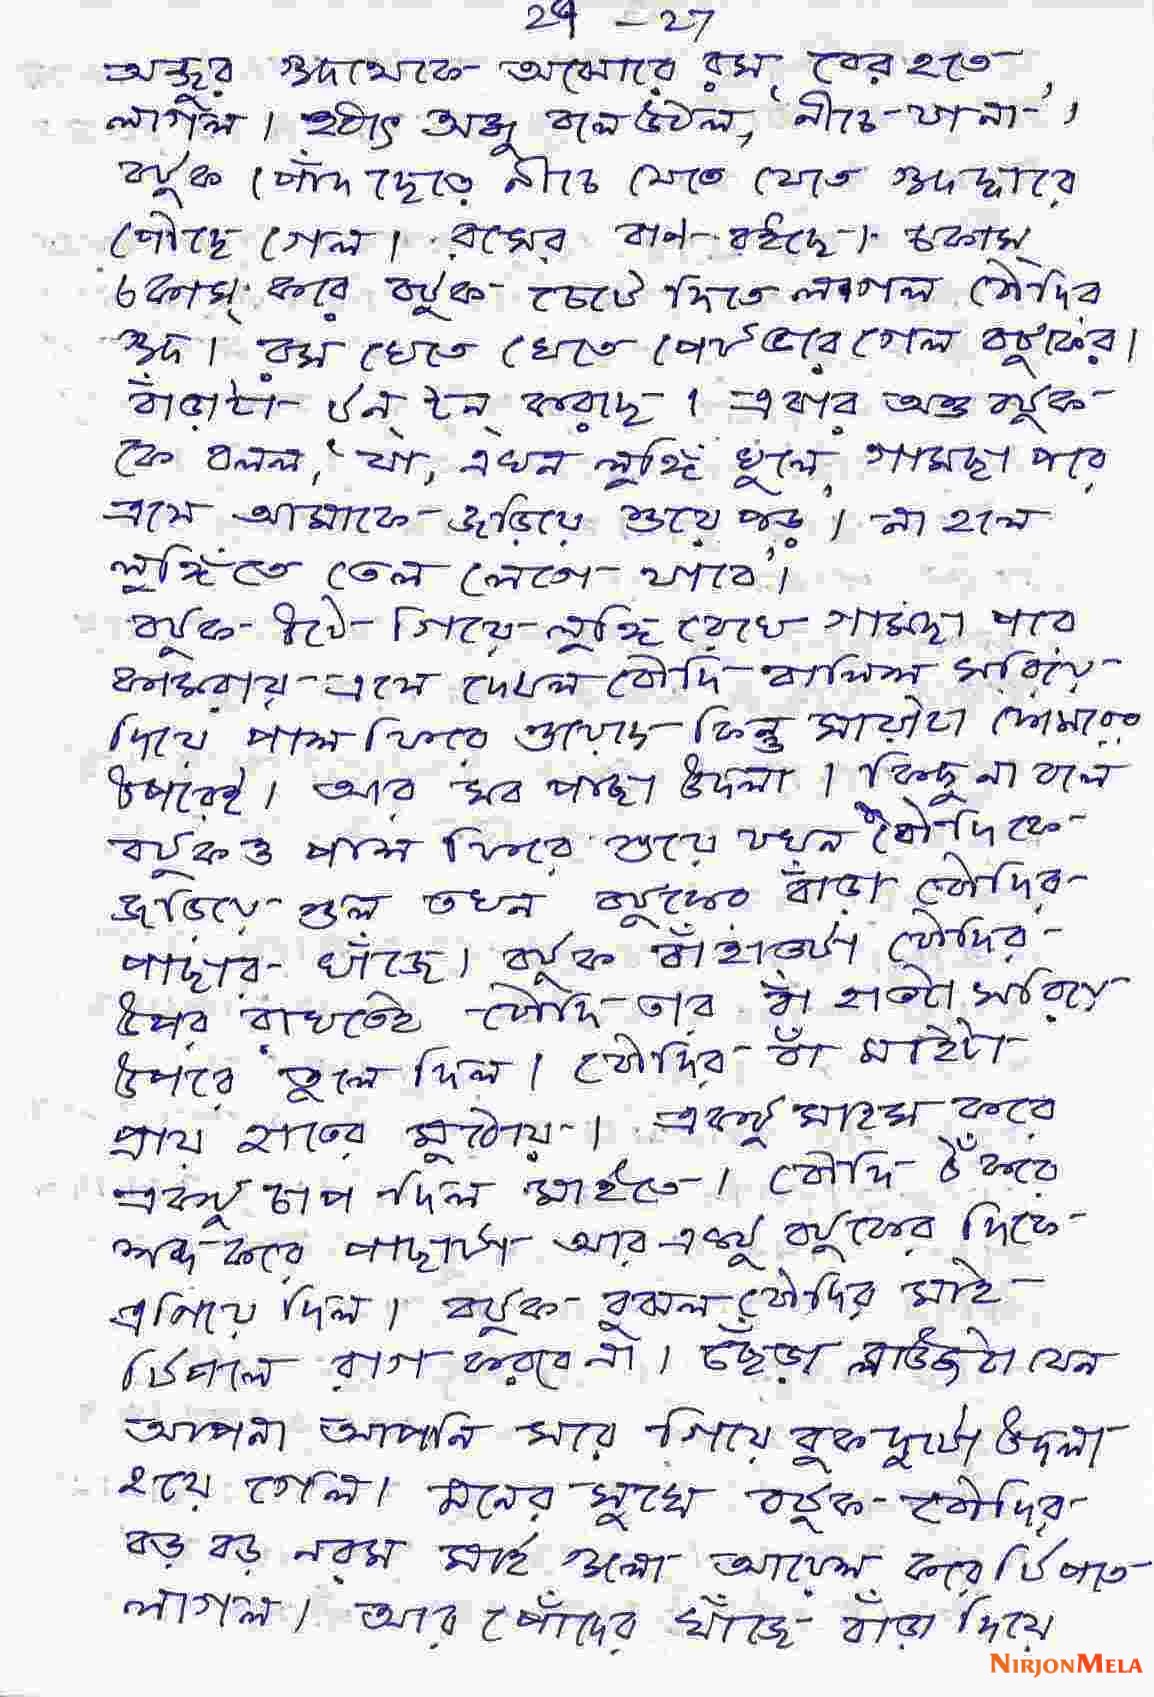 24 – 27
অঞ্জুর গুদ থেকে অঝোরে রস বের হতে
লাগল। হঠাৎ অঞ্জু বলে উঠল, 'নীচে যা না'।
বটুক পোঁদ ছেড়ে নীচে যেতে যেতে গুদদ্বারে
পৌছে গেল। রসের বাণ বইছে। চকাম্
চকাম্ করে বটুক চেটে দিতে লাগল বৌদির
গুদ। রস খেতে খেতে পেট ভরে গেল বটুকের।
বাঁড়াটা টন্ টন্ করছে। এবার অঞ্জু বটুক
কে বলল, 'যা, এখন লুঙ্গি খুলে, গামছা পরে
এসে আমাকে জড়িয়ে শুয়ে পড়। না হলে
লুঙ্গিতে তেল লেগে যাবে'।
বটুক উঠে গিয়ে লুঙ্গি রেখে গামছা পরে
কামরায় এসে দেখল বৌদি বালিশ সরিয়ে
দিয়ে পাশ ফিরে শুয়েছে কিন্তু সায়াটা কোমরের
উপরেই। আর সব পাছা উদলা। কিছু না বলে
বটুকও পাশ ফিরে শুয়ে যখন বৌদিকে
জড়িয়ে শুল তখন বটুকের বাঁড়া বৌদির
পাছার খাঁজে। বটুক বাঁ হাতটা বৌদির
উপর রাখতেই বৌদি তার বাঁ হাতটা সরিয়ে
উপরে তুলে দিল। বৌদির বাঁ মাইটা
প্রায় হাতের মুঠোয়। একটু সাহস করে
একটু চাপ দিল মাইতে। বৌদি উঁ করে
শব্দ করে পাছাটা আর একটু বটুকের দিকে
এগিয়ে দিল। বটুক বুঝল বৌদির মাই
টিপলে রাগ করবে না। ছেঁড়া ব্লাউজটা যেন
আপনা আপনি সরে গিয়ে বুক দুটো উদলা
হয়ে গেল। মনের সুখে বটুক বৌদির
বড় বড় নরম মাই গুলো আয়েশ করে টিপতে
লাগল। আর পোঁদের খাঁজে বাঁড়া দিয়ে
NIRJONMELA